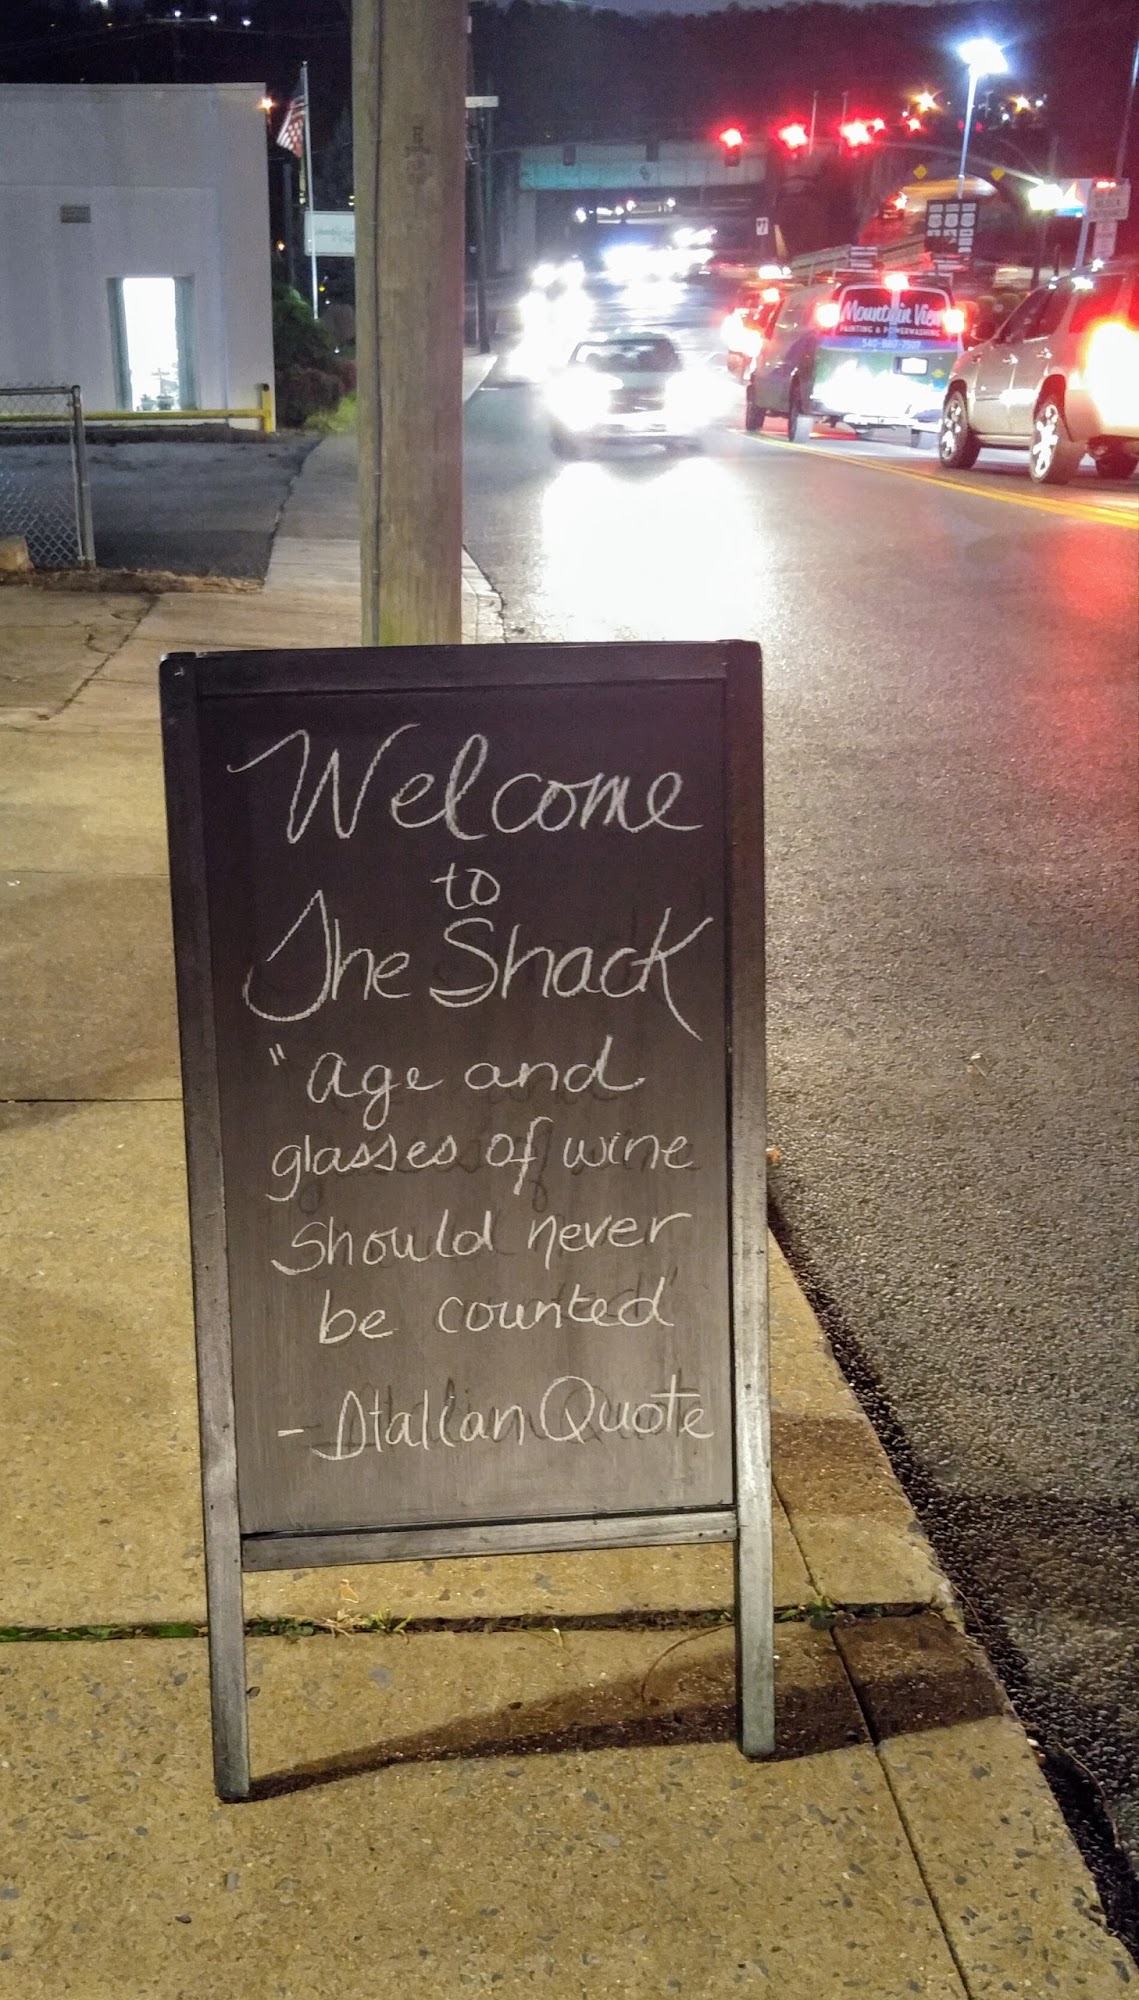 Mountain View
PAINTING & POWERWASHING
540-887-7507
Welcome
to
The Shack
"age and
glasses of wine
should never
be counted"
- Italian Quote